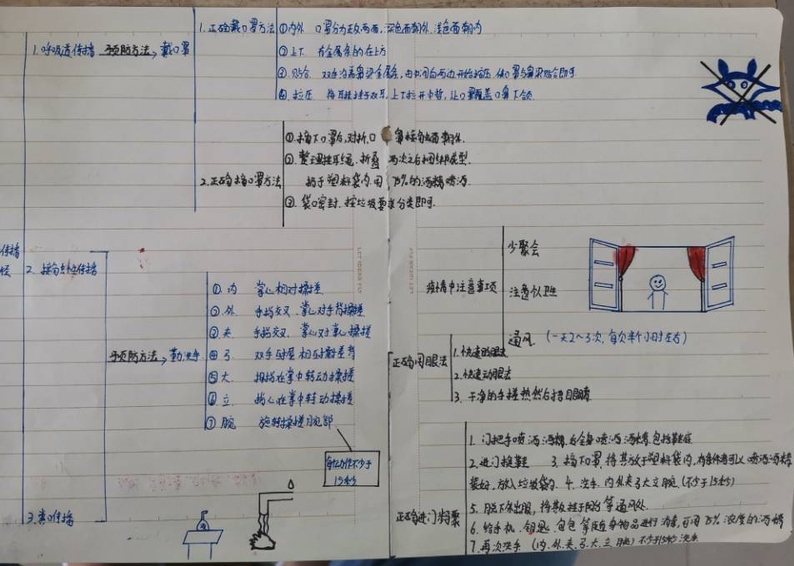 1.呼吸道传播 预防方法 戴口罩
1.正确戴口罩方法
①内外 口罩分为正反两面，深色面朝外，浅色面朝内
②上下 有金属条的在上方
③贴合 双手沿着鼻梁金属条，由中间向两边开始按压，使口罩与鼻梁贴合即可
④拉压 将耳挂挂于双耳，上下拉开中带，让口罩覆盖口鼻下颌
2.正确摘口罩方法
①摘下口罩后，对折，口鼻接触面朝外
②整理挂耳绳，折叠两次之后捆绑成型
扔于塑料袋内，用75%的酒精喷洒
③袋口密封，按垃圾要求分类即可.
传播
2.接触传播
预防方法 勤洗手
①内 掌心相对揉搓
②外 手指交叉、掌心对手背揉搓
③夹 手指交叉、掌心对掌心揉搓
④弓 双手
⑤大 拇指在掌中转动揉搓
⑥立 指尖在掌中转动揉搓
⑦腕 旋转揉搓腕部
每个动作不少于
15秒
3.
疫情中注意事项
少聚会
注意卫生
通风 (一天2~3次，每次半个小时左右)
正确闭眼法
1.快速
2.快速动眼法
3.干净的手搓热然后捂目眼睛
正确进门
1.门把手喷洒酒精，后全身喷洒酒精，包括鞋底
2.进门换鞋 3.摘下口罩，将其放于塑料袋内，有条件者可以喷洒酒精
装好，放入垃圾袋内. 4.洗手，内外夹弓大立腕 (不少于15秒)
5.脱下外出服，将其挂于阳台等通风处
6.给手机、钥匙、包包等随身物品进行消毒，可用75%浓度的酒精
7.再次洗手 (内.外.夹.弓.大.立.腕) 不少于15秒 洗手